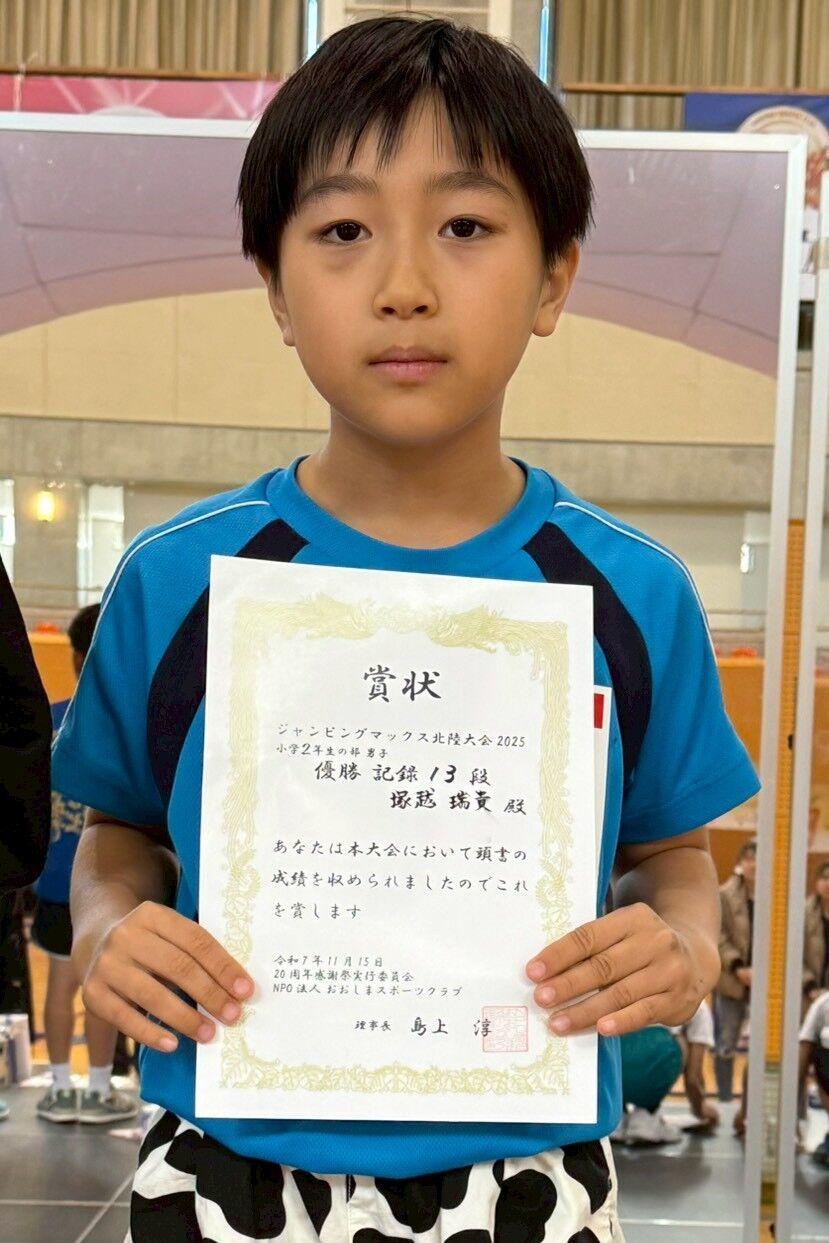 賞状
ジャンピングマックス北陸大会2025
小学2年生の部 男子
優勝 記録 13 段
塚越 瑞貴 殿
あなたは本大会において頭書の
成績を収められましたのでこれ
を賞します
令和7年11月15日
20周年感謝祭実行委員会
NPO法人 おおしまスポーツクラブ
理事長 島上 淳